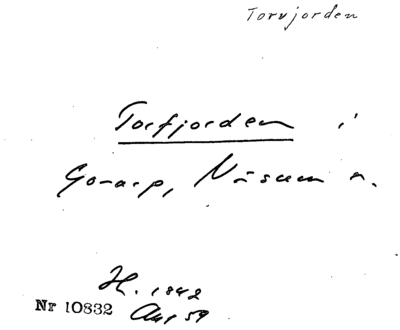 Torvjorden
Torfjorden i
Gonarp, Näsum s.
H. 1842
Nr 10832 Akt 59